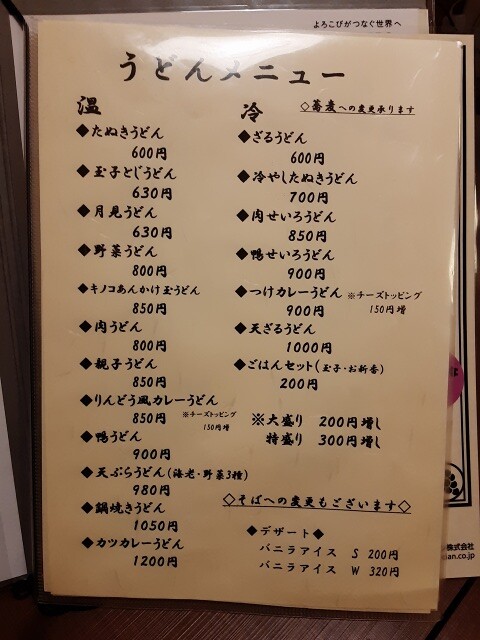 よろこびがつなぐ世界へ
うどんメニュー
温
◆たぬきうどん
600円
◆玉子とじうどん
630円
◆月見うどん
630円
◆野菜うどん
800円
◆キノコあんかけ玉うどん
850円
◆肉うどん
800円
◆親子うどん
850円
◆りんどう風カレーうどん
850円 ※チーズトッピング
150円増
◆鴨うどん
900円
◆天ぷらうどん(海老・野菜3種)
980円
◆鍋焼きうどん
1050円
◆カツカレーうどん
1200円
冷 ◇蕎麦への変更承ります
◆ざるうどん
600円
◆冷やしたぬきうどん
700円
◆肉せいろうどん
850円
◆鴨せいろうどん
900円
◆つけカレーうどん ※チーズトッピング
900円 150円増
◆天ざるうどん
1000円
◆ごはんセット(玉子・お新香)
200円
※大盛り 200円増し
特盛り 300円増し
◇そばへの変更もございます◇
◆デザート◆
バニラアイス S 200円
バニラアイス W 320円
株式会社
ian.co.jp